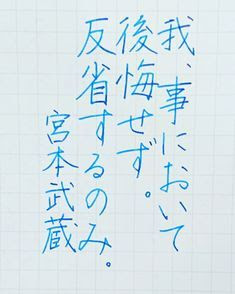 我、事において
後悔せず。
反省するのみ。
宮本武蔵